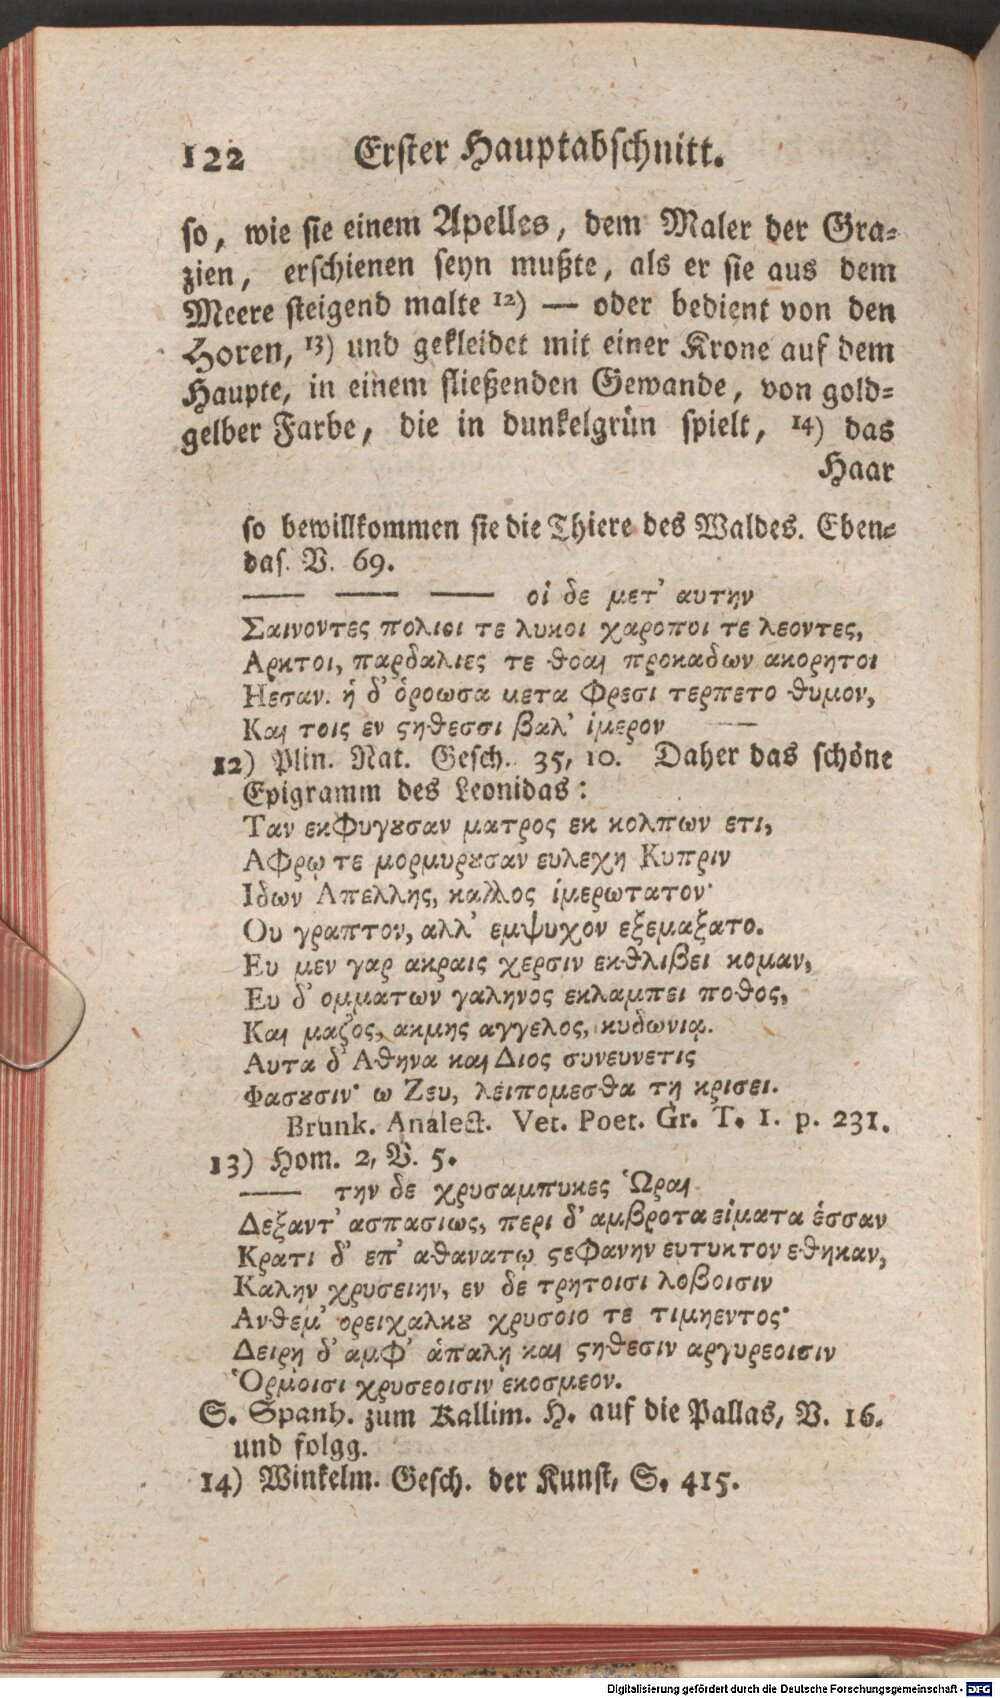 122 Erster Hauptabschnitt.
so, wie sie einem Apelles, dem Maler der Gra-
zien, erschienen seyn mußte, als er sie aus dem
Meere steigend malte 12) — oder bedient von den
Horen, 13) und gekleidet mit einer Krone auf dem
Haupte, in einem fließenden Gewande, von gold-
gelber Farbe, die in dunkelgrün spielt, 14) das
Haar
so bewillkommen sie die Thiere des Waldes. Eben-
das. V. 69.
— — — οἱ δε μετ' αυτην
Σαινοντες πολιοι τε λυκοι χαροποι τε λεοντες,
Αρκτοι, παρδαλιες τε θοαι προκαδων ακορητοι
Ηεσαν. ἡ δ' ὁροωσα μετα φρεσι τερπετο θυμον,
Και τοις εν ϛηθεσσι βαλ' ἱμερον —
12) Plin. Nat. Gesch. 35, 10. Daher das schöne
Epigramm des Leonidas:
Ταν εκφυγȣσαν ματρος εκ κολπων ετι,
Αφρῳ τε μορμυρȣσαν ευλεχη Κυπριν
Ιδων Απελλης, καλλος ἱμερωτατον·
Ου γραπτον, αλλ' εμψυχον εξεμαξατο.
Ευ μεν γαρ ακραις χερσιν εκθλιβει κομαν,
Ευ δ' ομματων γαληνος εκλαμπει ποθος,
Και μαζος, ακμης αγγελος, κυδωνιᾳ.
Αυτα δ' Αθηνα και Διος συνευνετις
Φασȣσιν· ω Ζευ, λειπομεσθα τῃ κρισει.
Brunk. Analect. Vet. Poet. Gr. T. 1. p. 231.
13) Hom. 2, V. 5.
— την δε χρυσαμπυκες Ὡραι
Δεξαντ' ασπασιως, περι δ' αμβροτα εἱματα ἑσσαν
Κρατι δ' επ' αθανατῳ ϛεφανην ευτυκτον εθηκαν,
Καλην χρυσειην, εν δε τρητοισι λοβοισιν
Ανθεμ' ορειχαλκȣ χρυσοιο τε τιμηεντος·
Δειρῃ δ' αμφ' ἁπαλῃ και ϛηθεσιν αργυρεοισιν
Ὁρμοισι χρυσεοισιν εκοσμεον.
S. Spanh. zum Kallim. H. auf die Pallas, V. 16.
und folgg.
14) Winkelm. Gesch. der Kunst, S. 415.
Digitalisierung gefördert durch die Deutsche Forschungsgemeinschaft - DFG